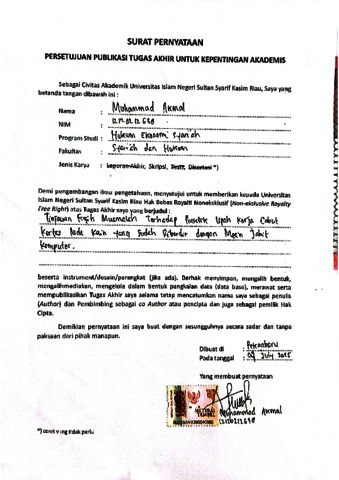 SURAT PERNYATAAN
PERSETUJUAN PUBLIKASI TUGAS AKHIR UNTUK KEPENTINGAN AKADEMIS
Sebagai Civitas Akademik Universitas Islam Negeri Sultan Syarif Kasim Riau, Saya yang
bertanda tangan dibawah ini :
Nama : Mohammad Akmal
NIM : 12120212698
Program Studi : Hukum Ekonomi Syariah
Fakultas : Syariah dan Hukum
Jenis Karya : Laporan Akhir, Skripsi, Tesis, Disertasi *)
Demi pengembangan ilmu pengetahuan, menyetujui untuk memberikan kepada Universitas
Islam Negeri Sultan Syarif Kasim Riau Hak Bebas Royalti Noneksklusif (Non-exclusive Royalty
Free Right) atas Tugas Akhir saya yang berjudul :
Tinjauan Fiqih Muamalah Terhadap Praktik Upah Kerja Cabut
Kertas Pada Kain yang Sudah Dibordir dengan Mesin Jahit
Komputer.
beserta instrument/desain/perangkat (jika ada). Berhak menyimpan, mengalih bentuk,
mengalihmediakan, mengelola dalam bentuk pangkalan data (data base), merawat serta
mempublikasikan Tugas Akhir saya selama tetap mencatumkan nama saya sebagai penulis
(Author) dan Pembimbing sebagai co Author atau pencipta dan juga sebagai pemilik Hak
Cipta.
Demikian pernyataan ini saya buat dengan sesungguhnya secara sadar dan tanpa
paksaan dari pihak manapun.
Dibuat di : Pekanbaru
Pada tanggal : 09 July 2025
Yang membuat pernyataan
METERAI
TEMPEL
Mohammad Akmal
12120212698
*) coret yang tidak perlu